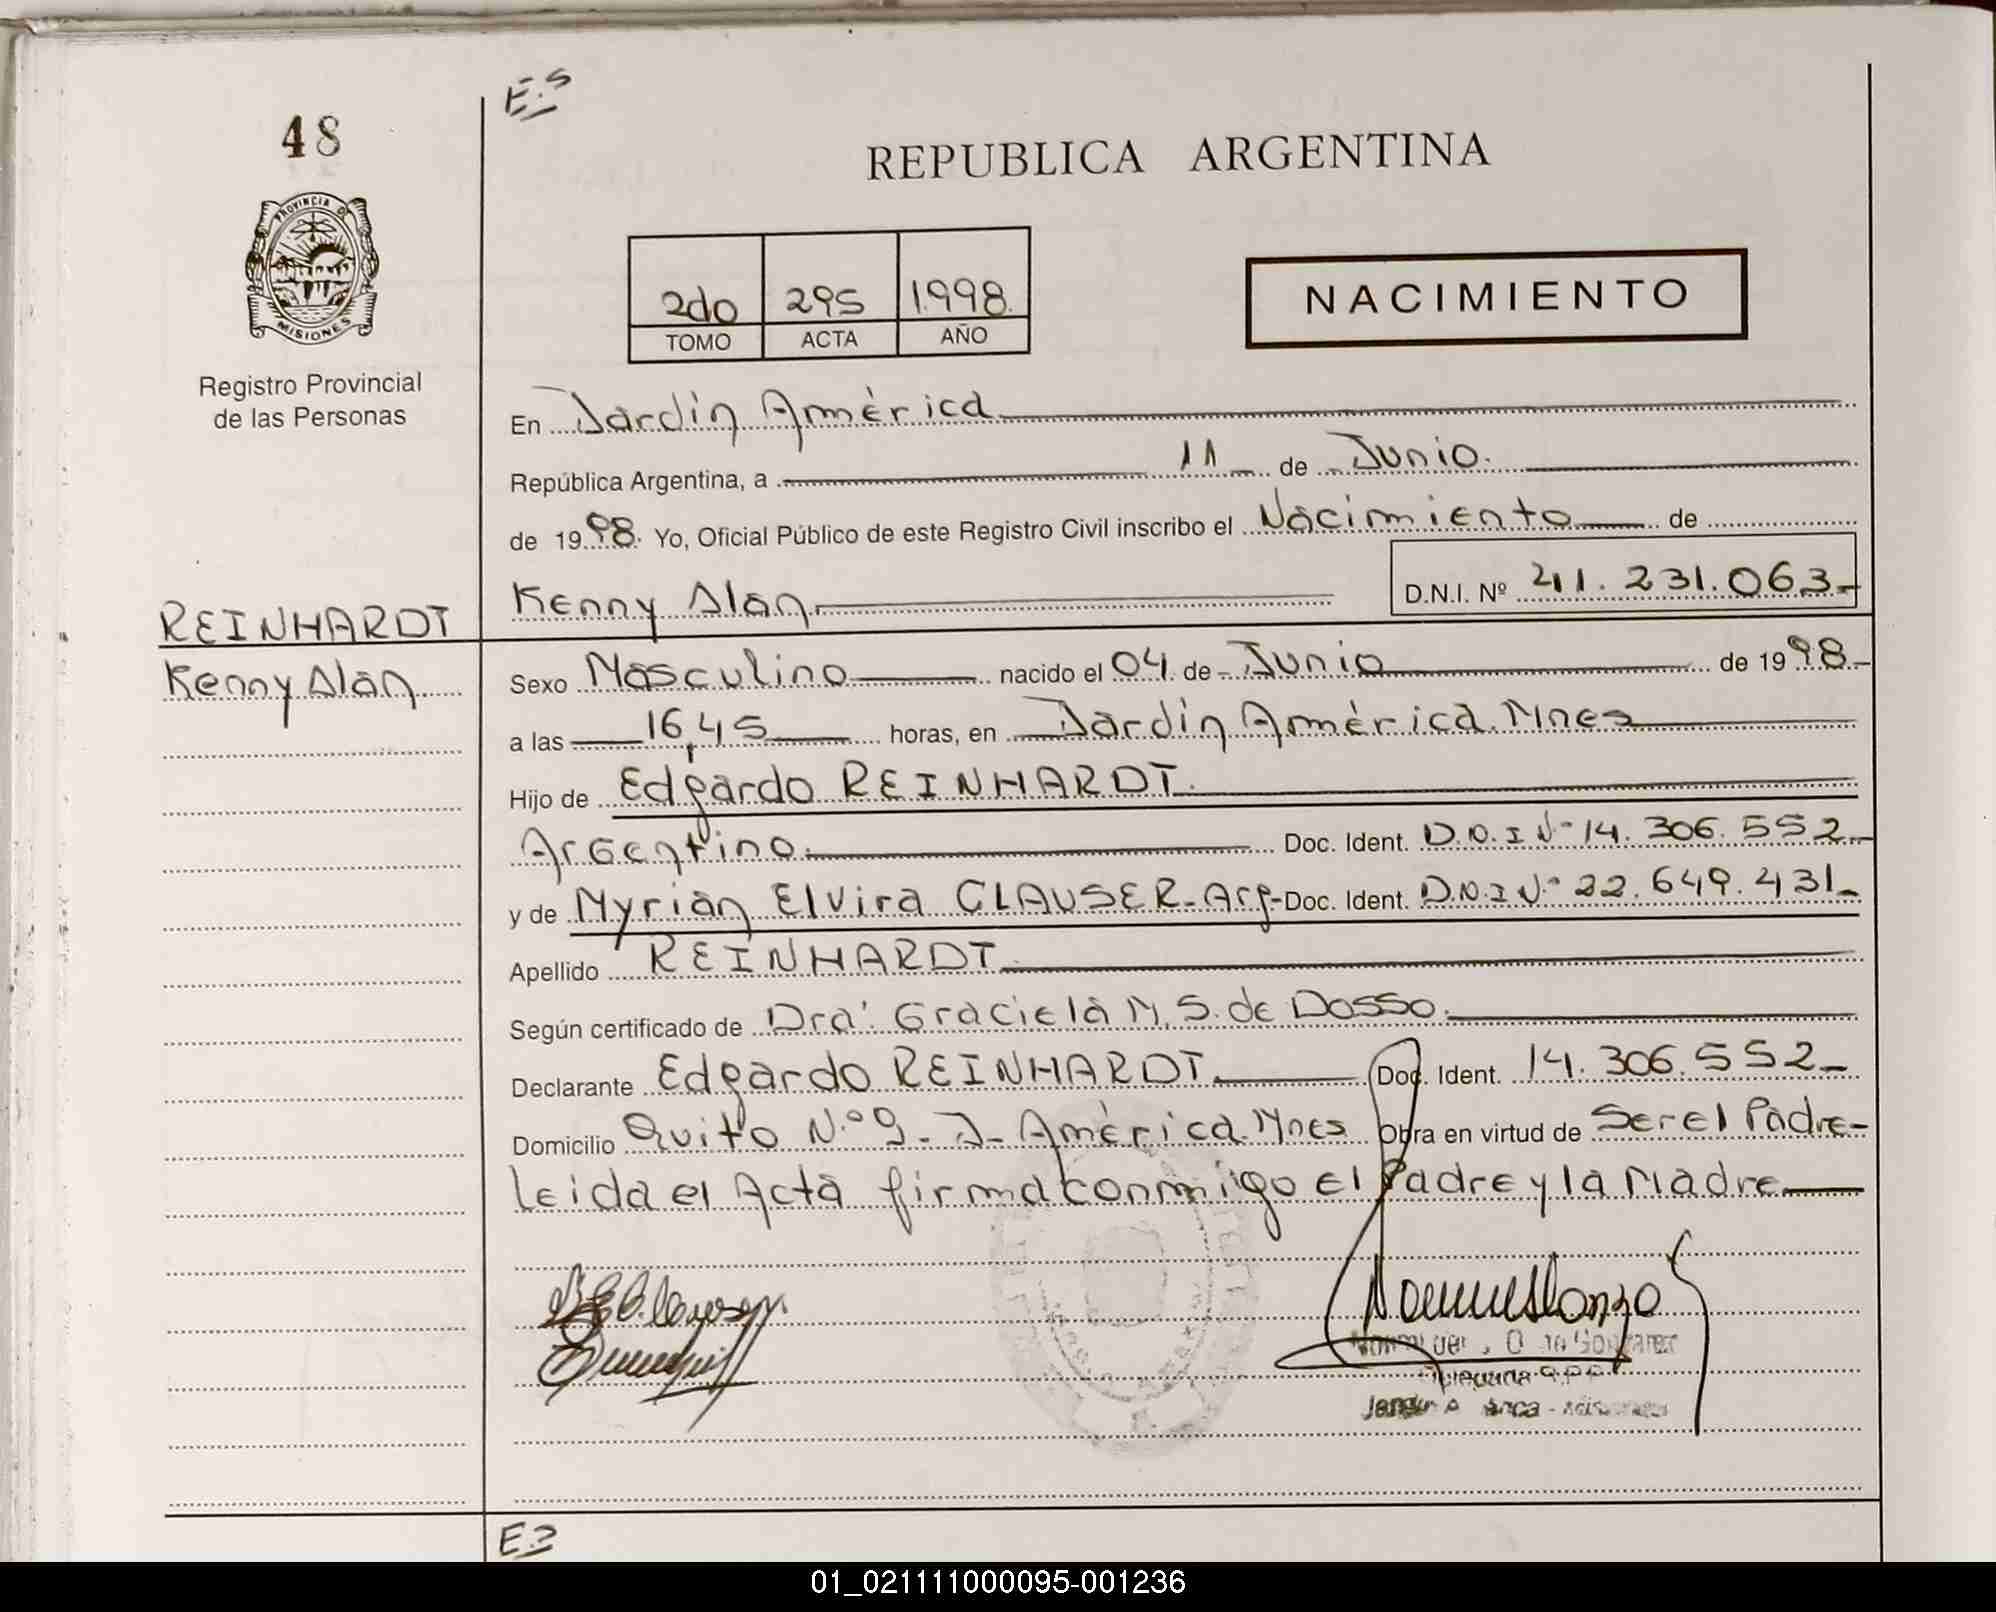 E.S
48
REPUBLICA ARGENTINA
PROVINCIA DE
MISIONES
Registro Provincial
de las Personas
2do 295 1.998.
TOMO ACTA AÑO
NACIMIENTO
En Jardín América
República Argentina, a 11 de Junio.
de 1998. Yo, Oficial Público de este Registro Civil inscribo el Nacimiento de
Kenny Alan D.N.I. Nº 41.231.063-
REINHARDT
Kenny Alan
Sexo Masculino nacido el 04 de Junio de 1998.-
a las 16,45 horas, en Jardín América. Mnes
Hijo de Edgardo REINHARDT.
Argentino. Doc. Ident. D.N.I Nº 14.306.552-
y de Myrian Elvira CLAUSER-Arg- Doc. Ident. D.N.I Nº 22.649.431-
Apellido REINHARDT
Según certificado de Dra. Graciela M. S. de Dosso.
Declarante Edgardo REINHARDT. Doc. Ident. 14.306.552-
Domicilio Quito N.º 9- J- América. Mnes Obra en virtud de Ser el Padre-
Leida el Acta firma conmigo el Padre y la Madre
01_021111000095-001236